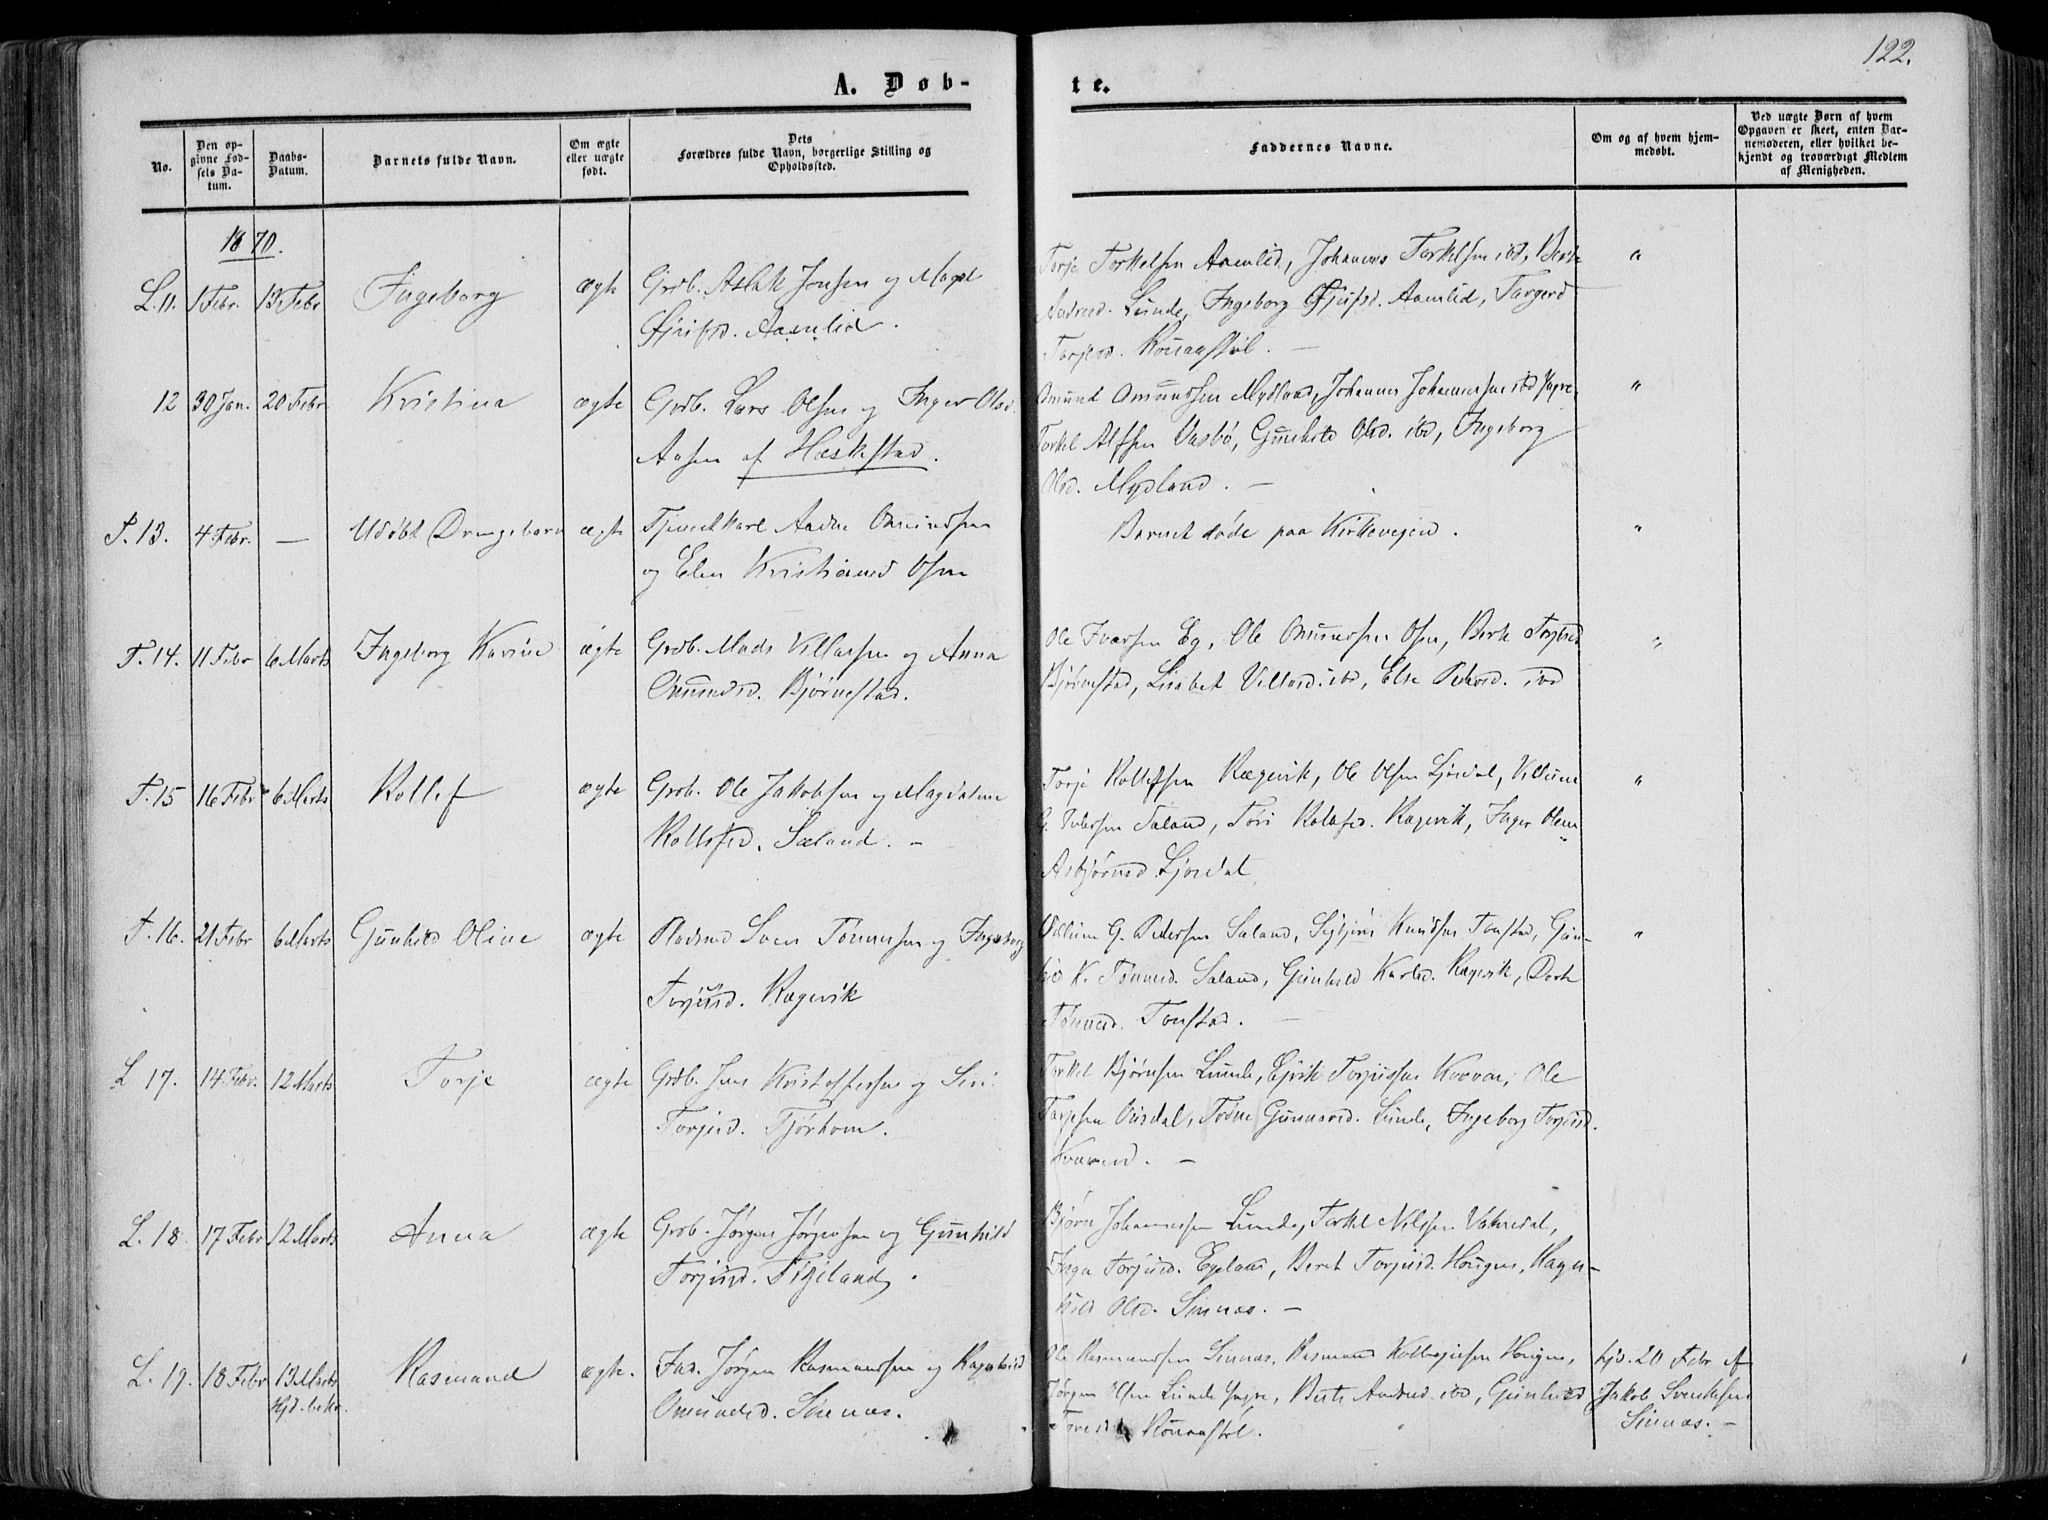 122.
A. Døb-
te.
No.
Den op-
givne Fød-
sels Da-
tum.
Daabs-
Datum.
Barnets fulde Navn.
Om ægte
eller uægte
født.
Dets
Forældres fulde Navn, borgerlige Stilling og
Opholdssted.
Faddernes Navne.
Om og af hvem hjem-
medøbt.
Ved uægte Børn af hvem
Opgaven er skeet, enten Bar-
nemoderen, eller hvilket be-
kjendt og troværdigt Medlem
af Menigheden.
1870.
L. 11. 1 Febr. 13 Febr Ingeborg ægte Grdb. Aslak Jonsen og
Aamlid.
Torje Torkelsen Aamlid, Johannes Torkelsen ibd, Berte
Andersd. Lunde, Ingeborg Aamlid, Targerd
Torjesd.
"
12 30 Jan. 20 Febr Kristina ægte Grdb. Lars Olsen og Inger Olsd.
Aasen af Heskestad.
Omund Omundsen Mydland, Johannes Johannessen ibd Yngre,
Torkel Alfsen Vasbø, Gunhild Olsd. ibd, Ingeborg
Olsd. Mydland. —
"
T. 13. 4 Febr. — Udøbt Drengebarn ægte Tjenestkarl Aadne Omundsen
og Elen Kristiansd Osen
Barnet døde paa Kirkeveien.
"
T. 14. 11 Febr 6 Marts Ingeborg Karine ægte Grdb. Mads Villassen og Anna
Omundsd. Bjørnestad.
Ole Ivarsen Eg, Ole Omundsen Osen, Berte Torjesd
Bjørnestad, Lisabet Villasd. ibd, Else Pedersd. ibd
"
T. 15 16 Febr 6 Marts Rollef ægte Grdb. Ole Jakobsen og Magdalene
Rollefsd. Sæland. —
Torje Rollefsen Rægevik, Ole Olsen Ljosdal, Villum
G. Pedersen Saland, Tori Rolefsd. Rægevik, Inger Olene
Asbjørnsd Ljosdal
"
T. 16. 21 Febr 6 Marts Gunhild Oline ægte Pladsmd Sven Tønnessen og Ingeborg
Torjusd. Rægevik
Villum G. Pedersen Saland, Sigbjørn Knudsen Tonstad, Gun-
hild K. Tønnesd. Saland, Gunhild Karlsd. Rægevik, Dorte
Tønnesd. Tonstad. —
"
L 17. 14 Febr. 12 Marts Torje ægte Grdb. Jens Kristoffersen og Siri
Torjusd. Tjørhom.
Torkel Bjørnsen Lunde, Eirik Torjussen Kvæven, Ole
Torjesen Ousdal, Tone Gunnarsd. Lunde, Ingeborg Torjusd.
Kvæven. —
L. 18. 17 Febr 12 Marts Anna ægte Grdb. Jørgen Jørgensen og Gunhild
Torjusd. Fidjeland.
Bjørn Johannessen Lunde, Torkel Nilsen Vatnedal,
Inga Torjusd. Egeland, Beret Torjusd. Hougen, Ragn-
hild Olsd. Sinnas. —
L. 19. 18 Febr 13 Marts
Hjd. bekr. Rasmund ægte. Jørgen Rasmundsen og Ragnhild
Omundsd. Sinnas.
Ole Rasmundsen Sinnas, Rasmund Hougen,
Jørgen Olsen Lunde Yngre, Berte Andersd ibd, Gunhild
hjd. 20 Febr af
Jakob Svendsen
Sinnas. —